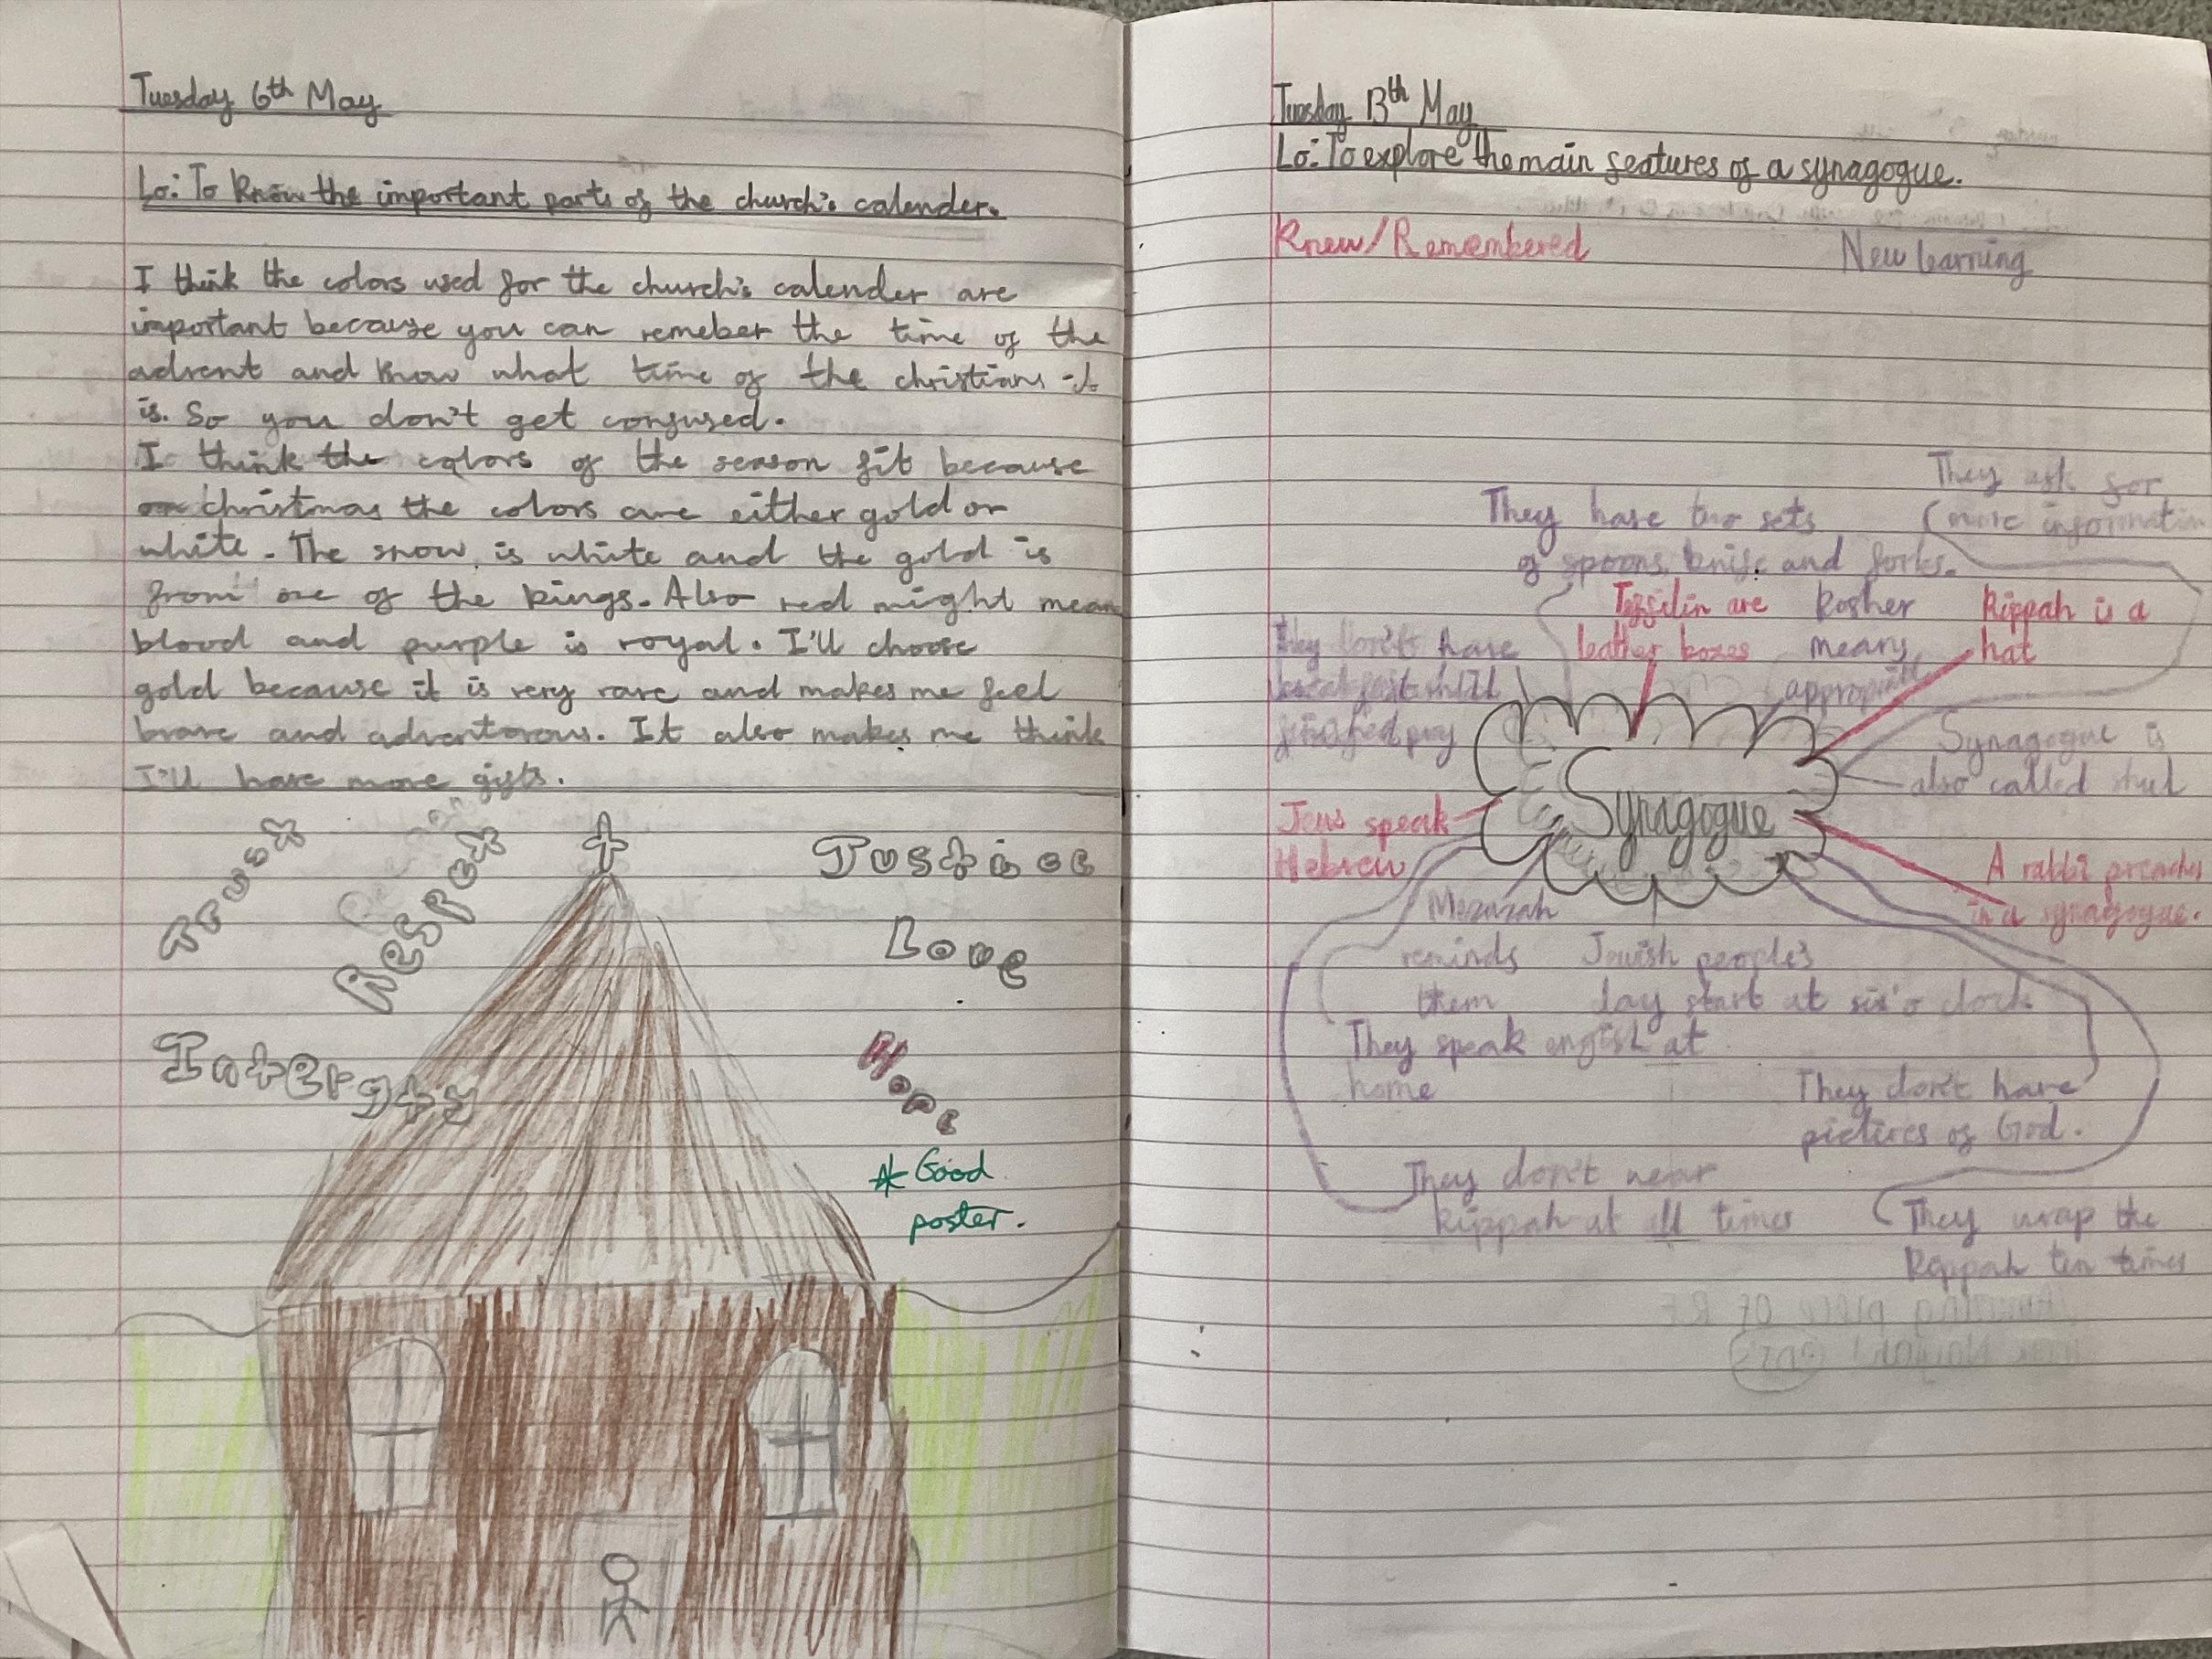 Tuesday 6th May
Lo: To know the important parts of the church's calender.
I think the colors used for the church's calender are
important because you can remeber the time of the
advent and know what time of the christians
is. So you don't get confused.
I think the colors of the season fit because
christmas the colors are either gold or
white. The snow is white and the gold is
from one of the kings. Also red might mean
blood and purple is royal. I'll choose
gold because it is very rare and makes me feel
brave and adventorous. It also makes me think
I'll have more gifts.
Trust
Respect
Justice
Love
Intergty
Hope
* Good
poster.
Tuesday 13th May
Lo: To explore the main features of a synagogue.
Knew/Remembered
New learning
They ask for
more information
They have two sets
of spoons, knife and forks.
Teffilin are
leather boxes
Kosher
means
appropriate
Kippah is a
hat
They don't have
breakfast until
pray
Synagogue is
also called shul
Synagogue
Jews speak
Hebrew
A rabbi preaches
in a synagogue.
Mezuzah
reminds
them
Jewish people's
day start at six'o clock
They speak english at
home
They don't have
pictures of God.
They don't wear
kippah at all times
They wrap the
Kippah ten times